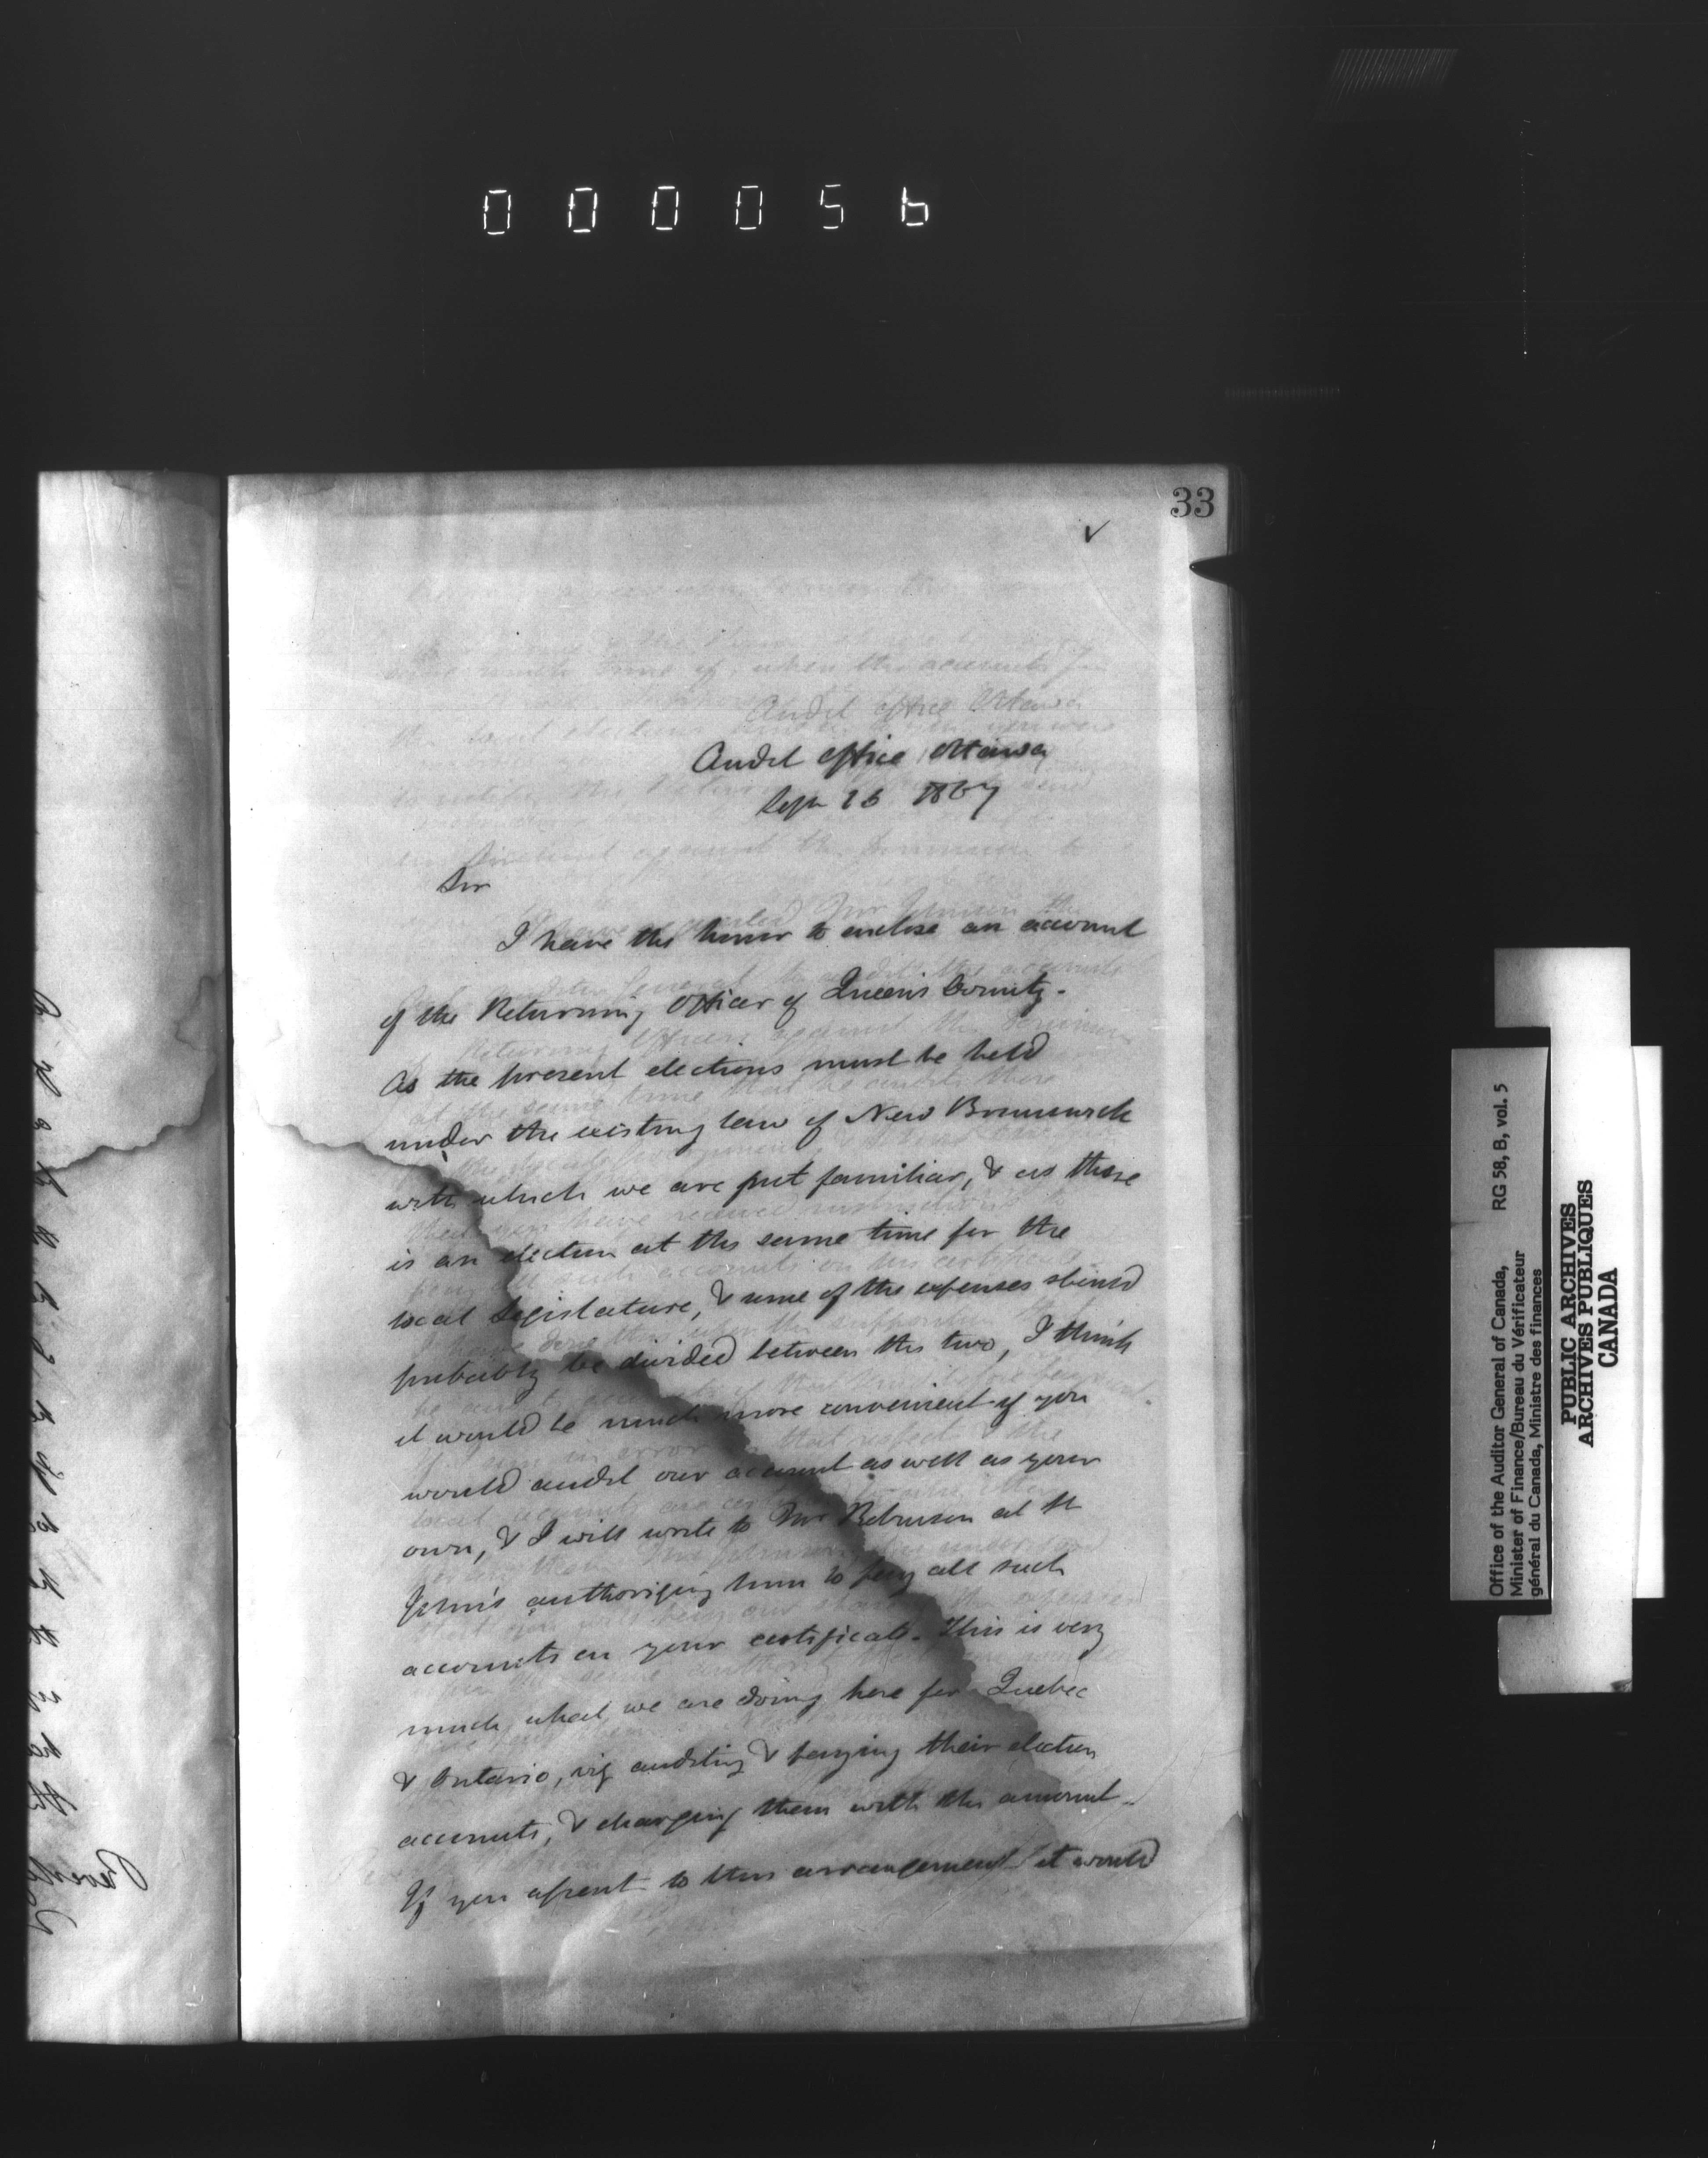 000056
33
Audit Office Ottawa
Sepr 1867
Sir
I have the honor to enclose an account
of the Returning Officer of Queen's County.
As the present elections must be held
under the existing law of New Brunswick
with which we are not familiar, & as there
is an election at the same time for the
local legislature, & some of the expenses should
probably be divided between the two, I think
it would be much more convenient if you
would audit our account as well as your
own, & I will write to Mr Robinson at St
John's authorizing him to pay all such
accounts on your certificate. This is very
much what we are doing here for Quebec
& Ontario, viz auditing & paying their election
accounts, & charging them with the amount.
If you assent to this arrangement it would
Office of the Auditor General of Canada, RG 58, B, vol. 5
Minister of Finance/Bureau du Vérificateur
général du Canada, Ministre des finances
PUBLIC ARCHIVES
ARCHIVES PUBLIQUES
CANADA